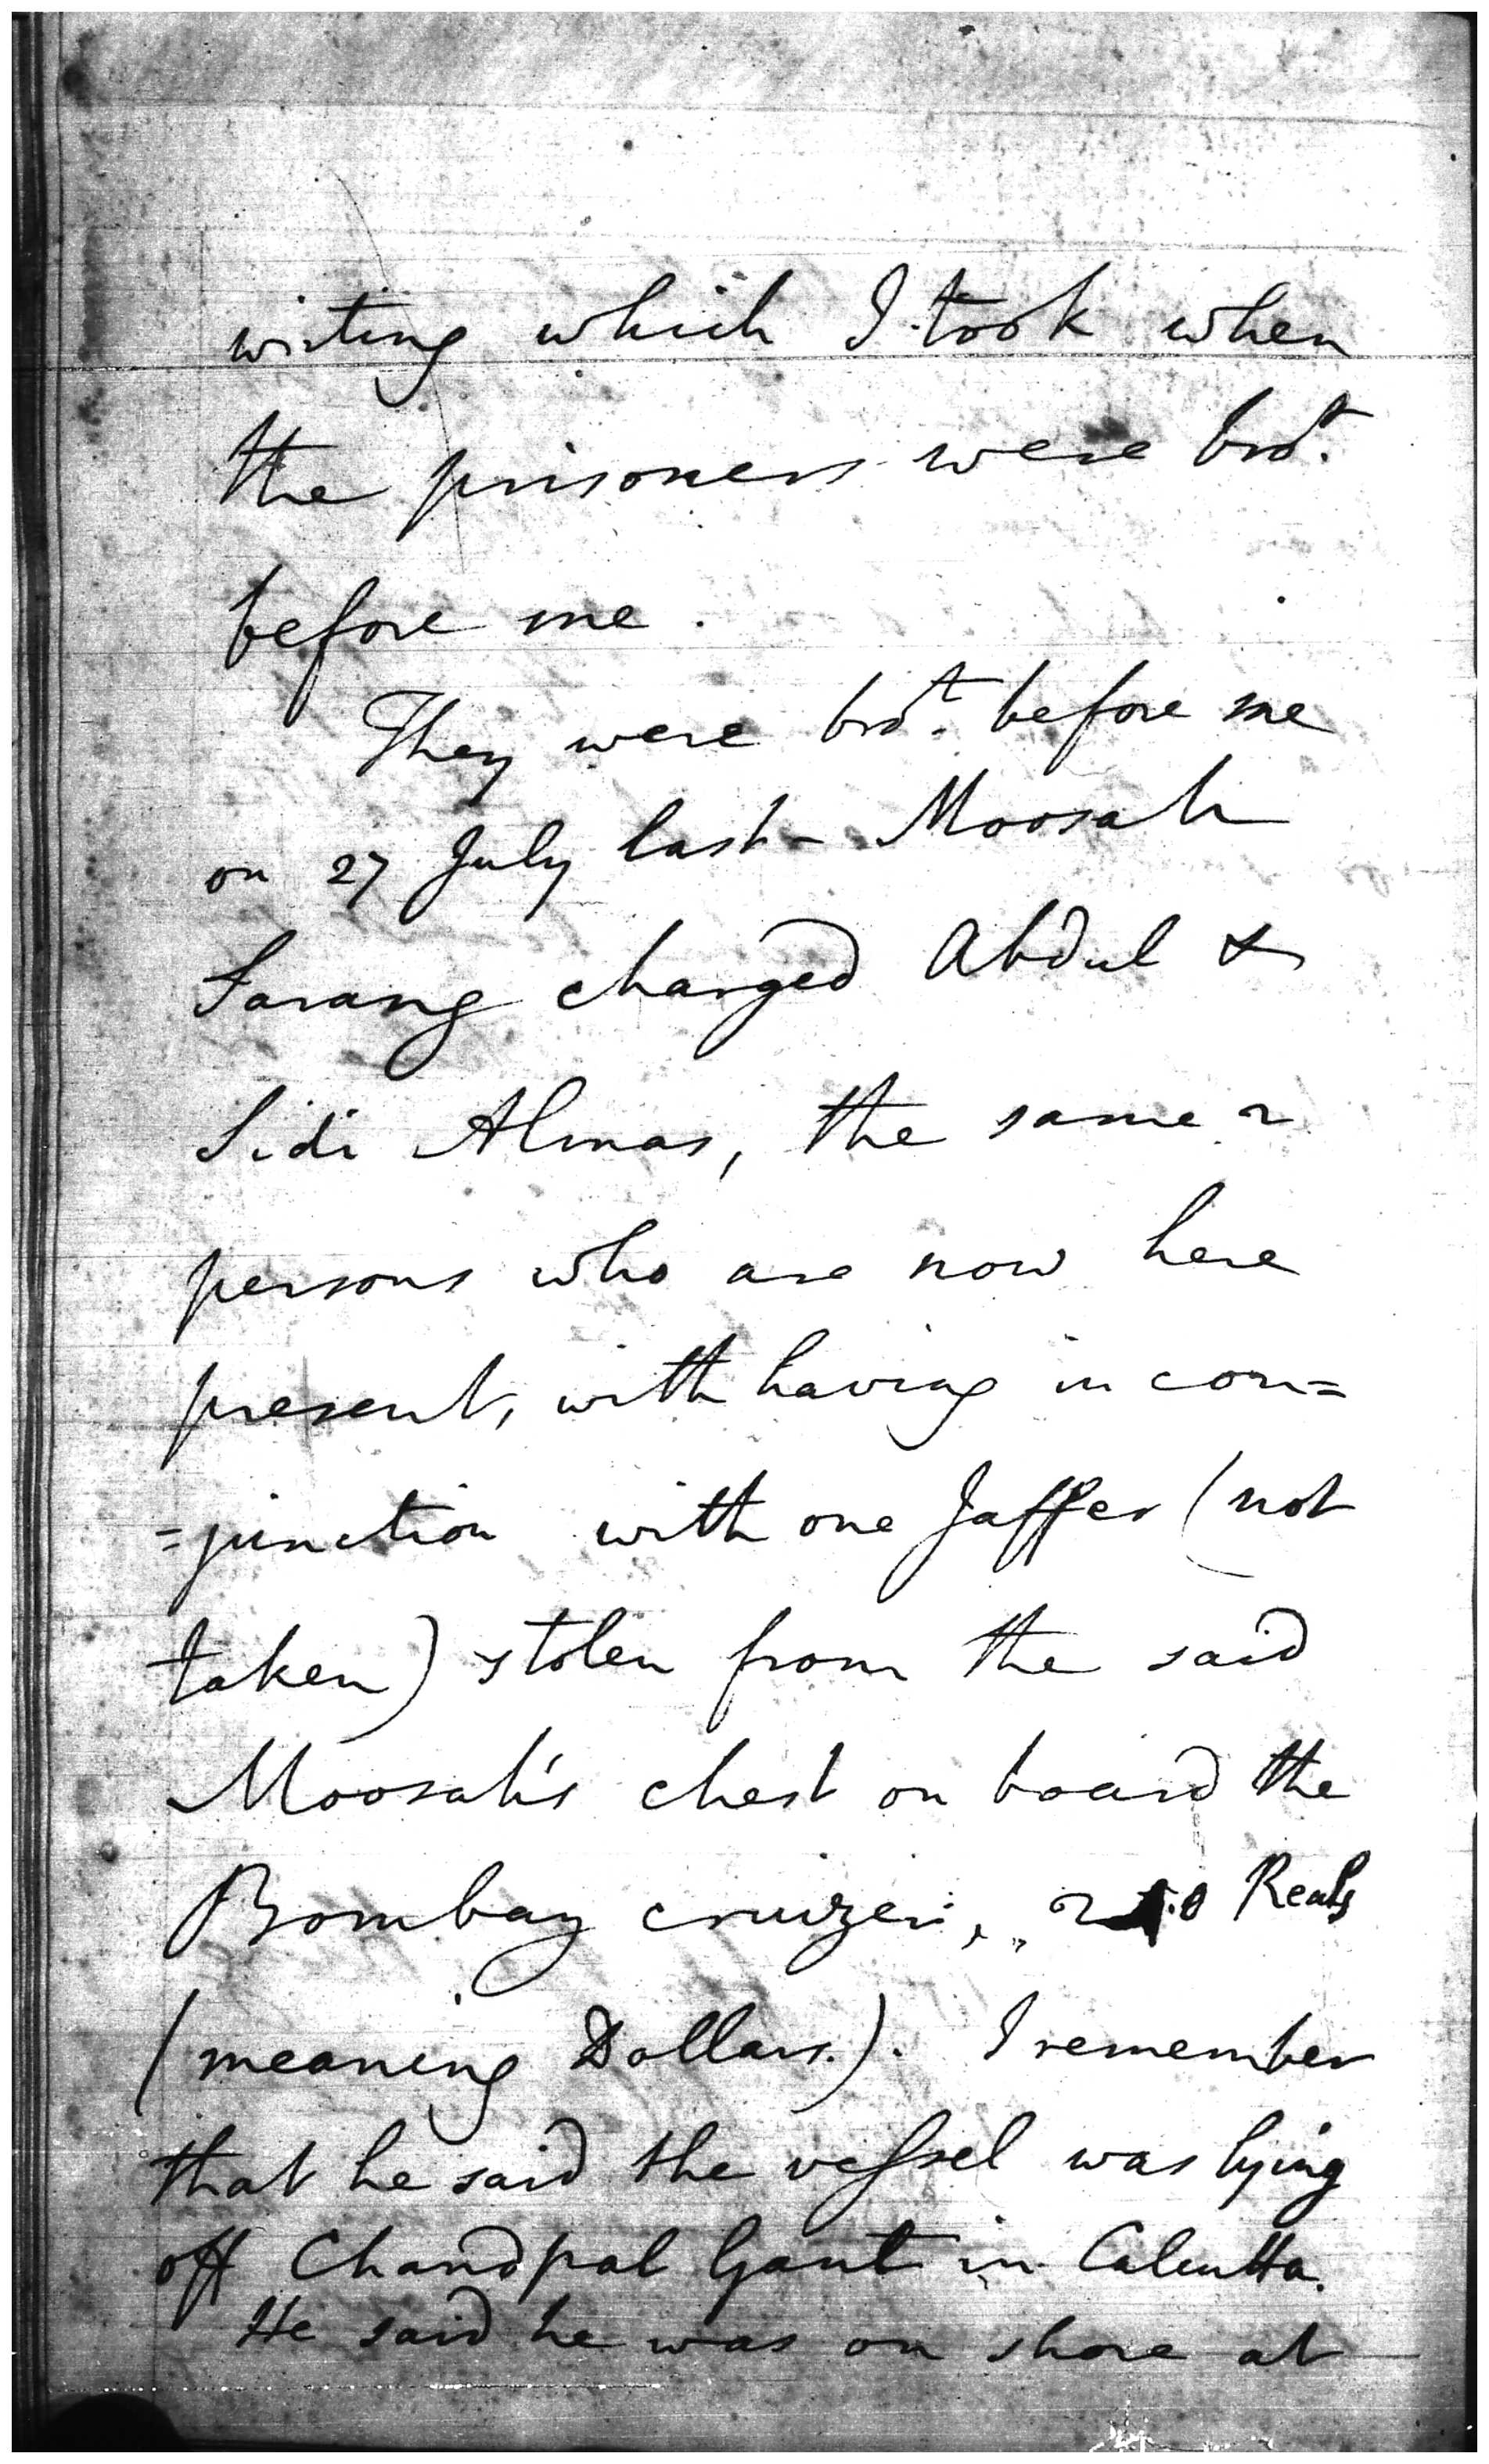 writing which I took when
the prisoners were bro.t
before me.
They were bro.t before me
on 27 July last - Moosah
Sarang charged Abdul &
Sidi Almas, the same 2
persons who are now here
present, with having in con=
=junction with one Jaffer (not
taken) stolen from the said
Moosah's chest on board the
Bombay cruizer, Reals
(meaning Dollars.). I remember
that he said the vessel was lying
off Chandpal Gaut in Calcutta.
He said he was on shore at